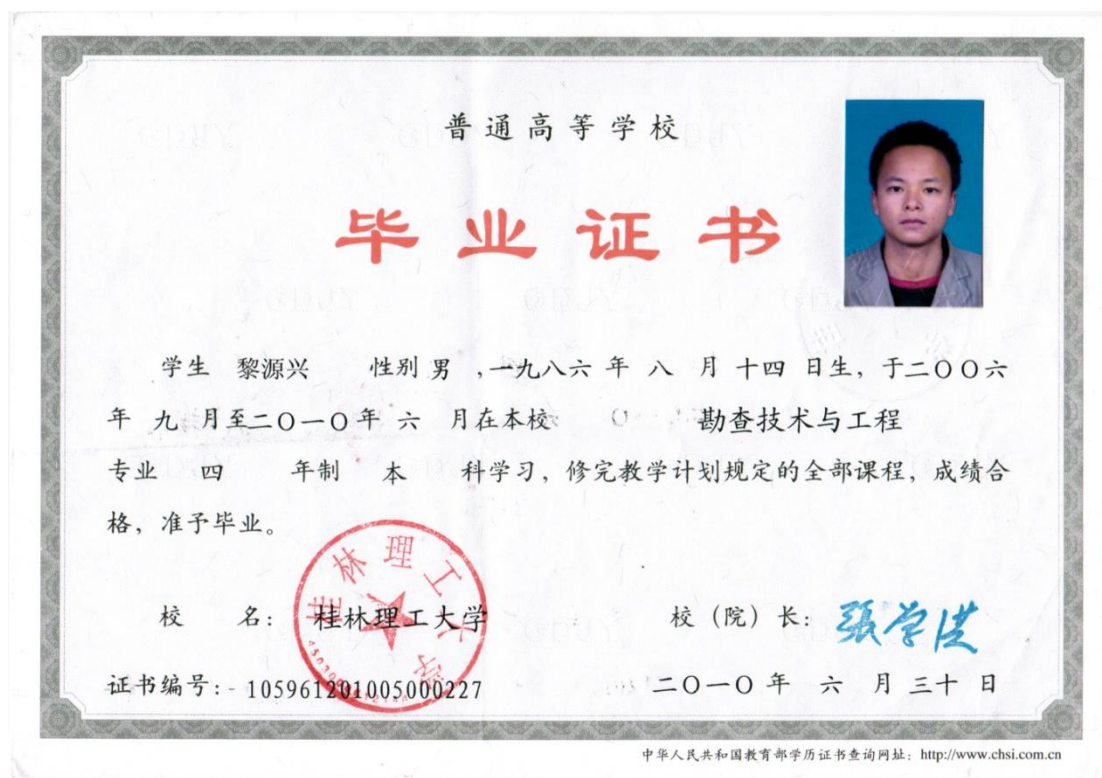 普通高等学校
毕业证书
学生 黎源兴 性别 男 ,一九八六 年 八 月 十四 日生，于二〇〇六
年 九 月至二〇一〇年 六 月在本校 勘查技术与工程
专业 四 年制 本 科学习，修完教学计划规定的全部课程，成绩合
格，准予毕业。
桂林理工大学
校 名： 桂林理工大学 校（院）长： 张学洪
证书编号： 105961201005000227 二〇一〇 年 六 月 三十 日
中华人民共和国教育部学历证书查询网址：http://www.chsi.com.cn